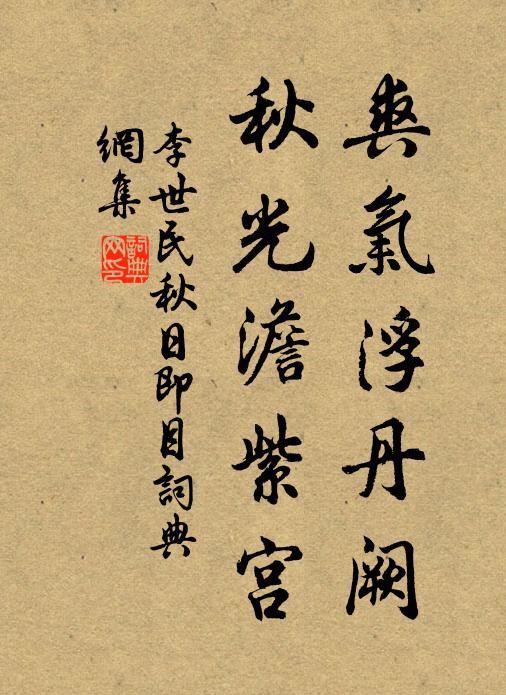 爽氣浮丹闕
秋光澹紫宮
李世民秋日即目詞典
網集
詞典
网印